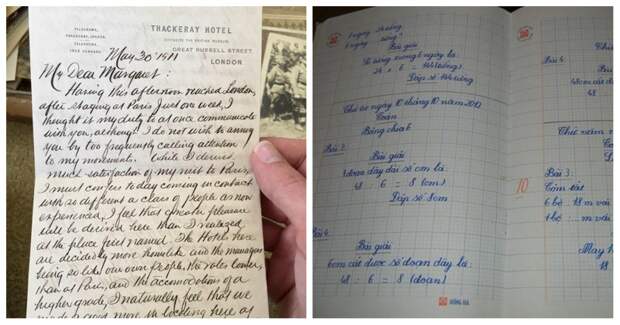 TELEGRAMS,
TELEPHONE
THACKERAY HOTEL
OPPOSITE THE BRITISH MUSEUM
GREAT RUSSELL STREET,
LONDON
May 30 1911
My Dear Margaret:
Having this afternoon reached London,
after staying at Paris just one week, I
thought it my duty to at once communicate
with you, although I do not wish to annoy
you by too frequently calling attention
to my movements. While I derived
much satisfaction of my visit to Paris,
I must confess to day coming in contact
with so different a class of people as now
experienced, I feel that greater pleasure
will be derived here than I realized
at the place first named. The Hotels here
are decidedly more homelike and the managers
being so like our own people, the rates lower,
than at Paris, and the accomodations of a
higher grade, I naturally feel that we
made a move in locating here as
1 ngày: 24 tiếng
6 ngày: tiếng?
Bài giải
Số tiếng trong 6 ngày là:
24 × 6 = 144 (tiếng)
Đáp số: 144 tiếng
Thứ tư ngày 10 tháng 10 năm 2012
Toán
Bảng chia 6
Bài 3
Bài giải
1 đoạn dây dài số cm là:
48 : 6 = 8 (cm)
Đáp số 8cm
Bài 4
Bài giải
6cm cắt được số đoạn dây là:
48 : 6 = 8 (đoạn)
HỒNG HÀ
Bài 4
48cm
48
10
Bài 3:
Tóm tắt
6 bộ: 18 m vải
1 bộ: ... m vải
May
18